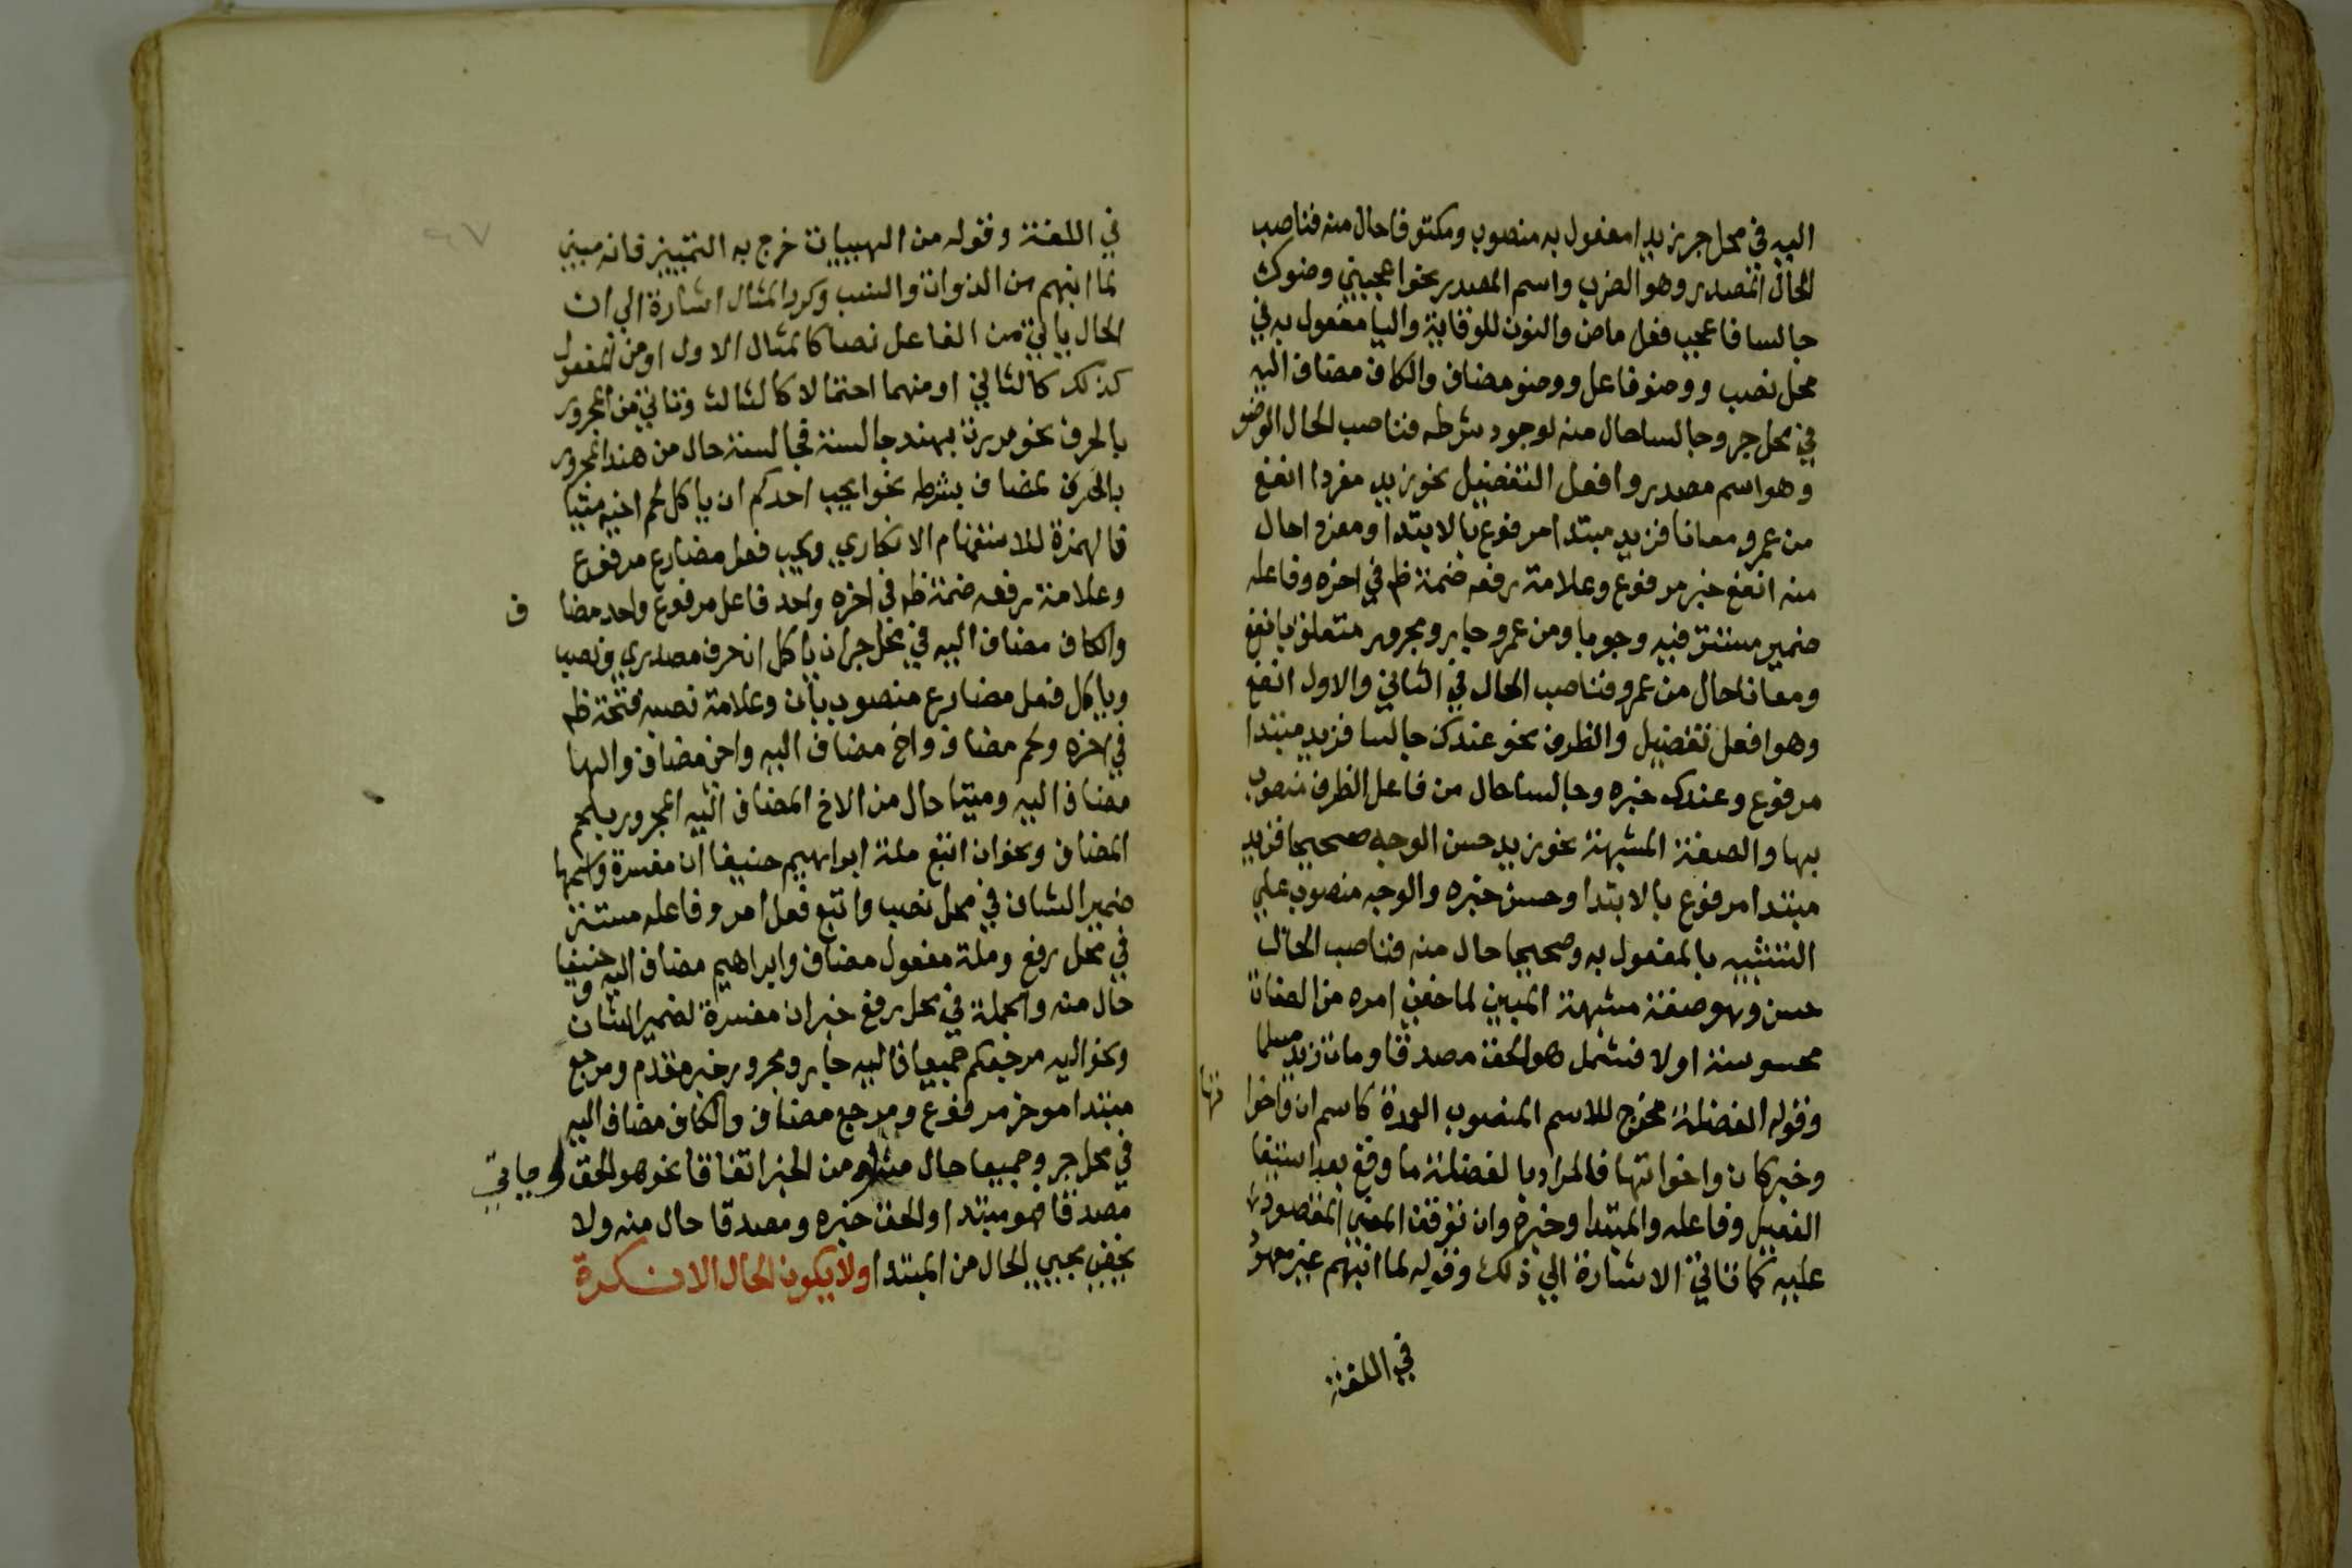 اليه في محل جر زيدا مفعول به منصوب ومكتوفا حال منه فناصب
الحال المصدر وهو الضرب واسم المصدر نحو اعجبني وضوك
جالسا فاعجب فعل ماض والنون للوقاية واليا مفعول به في
محل نصب ووضو فاعل ووضو مضاف والكاف مضاف اليه
في محل جر وجالسا حال منه لوجود شرطه فناصب الحال الوضو
وهو اسم مصدر وافعل التفضيل نحو زيد مفردا انفع
من عمرو معانا فزيد مبتدا مرفوع بالابتدا ومفردا حال
منه انفع خبر مرفوع وعلامة رفعه ضمة ظ في اخره وفاعله
ضمير مستتر فيه وجوبا ومن عمرو جار ومجرور متعلق بانفع
ومعانا حال من عمرو فناصب الحال في الثاني والاول انفع
وهو افعل تفضيل والظرف نحو عندك جالسا فزيد مبتدا
مرفوع وعندك خبره وجالسا حال من فاعل الظرف منصوب
بها والصفة المشبهة نحو زيد حسن الوجه صحيحا فزيد
مبتدا مرفوع بالابتدا وحسن خبره والوجه منصوب علي
التشبيه بالمفعول به وصحيحا حال منه فناصب الحال
حسن وهو صفة مشبهة المبين لما خفي امره من الصفات
محسوسة اولا فشمل هو الحق مصدقا ومات زيد مسلما
وقوله الفضلة مخرج للاسم المنصوب العمدة كاسم ان واخواتها
وخبر كان واخواتها فالمراد بالفضلة ما وقع بعد استيفا
الفعل وفاعله والمبتدا وخبره وان توقف المعني المقصود
عليه كما تاتي الاشارة الي ذلك وقوله لما انبهم غير معهود
في اللغة
في اللغة وقوله من الهييات خرج به التمييز فانه مبين
لما انبهم من الذوات والنسب وكرر المثال اشارة الي ان
الحال ياتي من الفاعل نصا كالمثال الاول او من المفعول
كذلك كالثاني او منهما احتمالا كالثالث وتاتي من المجرور
بالحرف نحو مررت بهند جالسة فجالسة حال من هند المجرور
بالحرف لمضاف بشرطه نحو ايحب احدكم ان ياكل لحم اخيه ميتا
فالهمزة للاستفهام الانكاري ويحب فعل مضارع مرفوع
وعلامة رفعه ضمة ظ في اخره واحد فاعل مرفوع واحد مضاف
والكاف مضاف اليه في محل جر ان ياكل ان حرف مصدري ونصب
وياكل فعل مضارع منصوب بان وعلامة نصبه فتحة ظ
في اخره ولحم مضاف واخ مضاف اليه واخ مضاف والها
مضاف اليه وميتا حال من الاخ المضاف اليه المجرور بلحم
المضاف ونحو ان اتبع ملة ابراهيم حنيفا ان مفسرة واسمها
ضمير الشان في محل نصب واتبع فعل امر وفاعله مستتر
في محل رفع وملة مفعول مضاف وابراهيم مضاف اليه وحنيفا
حال منه والجملة في محل رفع خبر ان مفسرة لضمير الشان
ونحو اليه مرجعكم جميعا فاليه جار ومجرور خبر مقدم ومرجع
مبتدا موخر مرفوع ومرجع مضاف والكاف مضاف اليه
في محل جر وجميعا حال منه ومن الخبر اتفاقا نحو هو الحق
مصدقا فهو مبتدا والحق خبره ومصدقا حال منه ولا
يخفي مجيي الحال من المبتدا ولا يكون الحال الا نكرة